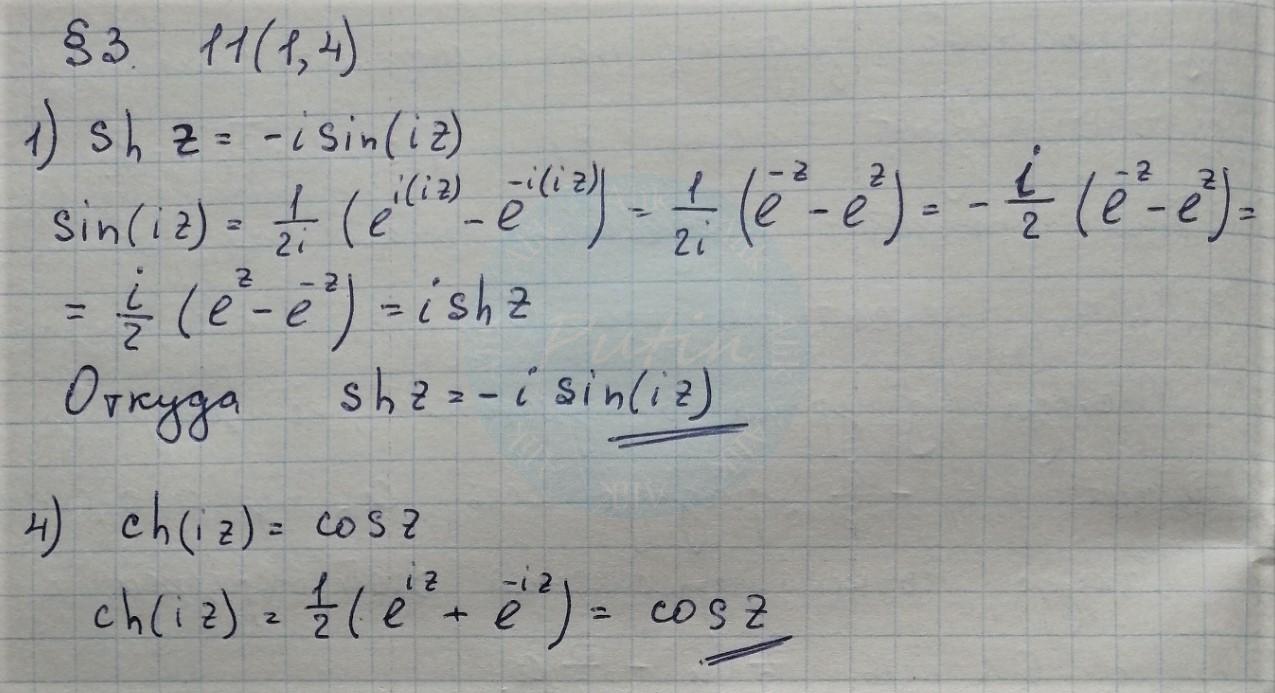 §3. 11(1,4)
1) sh z = -i sin(iz)
sin(iz) = 1/2i (e^{i(iz)} - e^{-i(iz)}) = 1/2i (e^{-z} - e^{z}) = - i/2 (e^{-z} - e^{z}) =
= i/2 (e^{z} - e^{-z}) = i sh z
Откуда sh z = -i sin(iz)
4) ch(iz) = cos z
ch(iz) = 1/2 (e^{iz} + e^{-iz}) = cos z